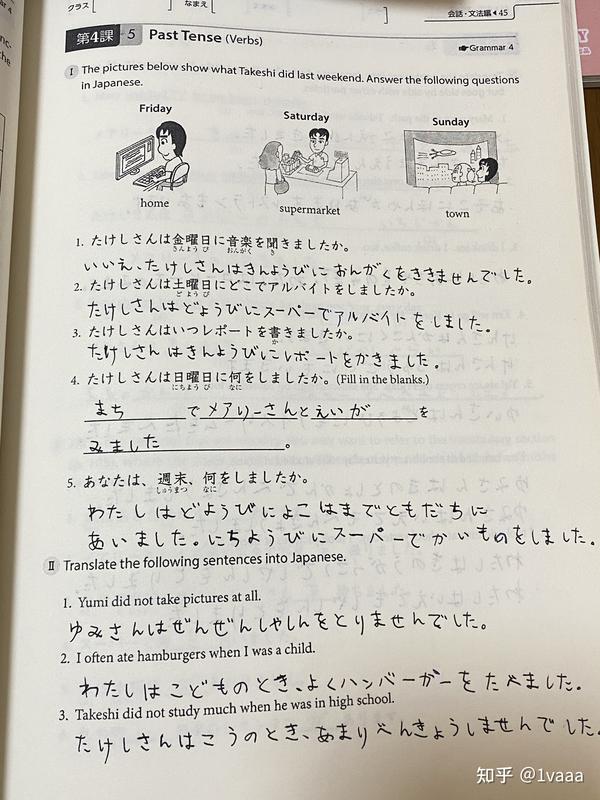 クラス
なまえ
会話・文法編◀45
第4課 5 Past Tense (Verbs)
☛Grammar 4
Ⅰ The pictures below show what Takeshi did last weekend. Answer the following questions
in Japanese.
Friday
Saturday
Sunday
home
supermarket
town
1. たけしさんは金曜日に音楽を聞きましたか。
きんよう び おんがく き
いいえ、たけしさんはきんようびにおんがくをききませんでした。
2. たけしさんは土曜日にどこでアルバイトをしましたか。
ど よう び
たけしさんはどようびにスーパーでアルバイトをしました。
3. たけしさんはいつレポートを書きましたか。
か
たけしさんはきんようびにレポートをかきました。
4. たけしさんは日曜日に何をしましたか。(Fill in the blanks.)
にちよう び なに
まち で メアリーさんとえいが を
みました 。
5. あなたは、週末、何をしましたか。
しゅうまつ なに
わたしはどようびによこはまでともだちに
あいました。にちようびにスーパーでかいものをしました。
Ⅱ Translate the following sentences into Japanese.
1. Yumi did not take pictures at all.
ゆみさんはぜんぜんしゃしんをとりませんでした。
2. I often ate hamburgers when I was a child.
わたしはこどものとき、よくハンバーガーをたべました。
3. Takeshi did not study much when he was in high school.
たけしさんはこうのとき、あまりべんきょうしませんでした。
知乎 @1vaaa